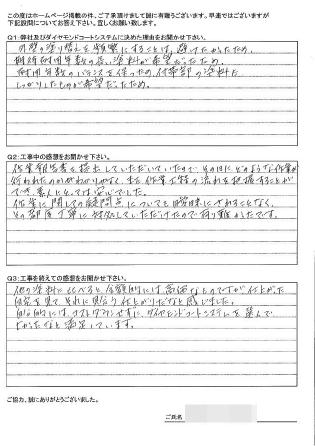 この度はホームページ掲載の件、ご了承頂けまして誠に有難うございます。早速ではございますが
下記設問についてお答え下さい。宜しくお願い致します。
Q1:弊社及びダイヤモンドコートシステムに決めた理由をお聞かせ下さい。
外壁の塗り替えを頻繁にすることは、避けたかったため、
期待耐用年数の長い塗料が希望だったため。
耐用年数のバランスを保つため、付帯部の塗料も
しっかりしたものが希望だったため。
Q2:工事中の感想をお聞かせ下さい。
作業報告書を提出していただいていたので、その日にどのような作業が
行われたのかがわかりやすく、また作業工程の流れを把握することが
でき、素人にも安心でした。
作業に関しての疑問点についても曖昧にされることなく、
その都度丁寧に対処していただけたので有り難かったです。
Q3:工事を終えての感想をお聞かせ下さい。
他の塗料に比べると、金額的には高価なものですが仕上がった
住宅を見て、それに見合う仕上がりだなと感じました。
結果的には、コストダウンせずに、ダイヤモンドコートシステムを選んで
よかったなと満足しています。
ご協力、誠にありがとうございました。
ご氏名